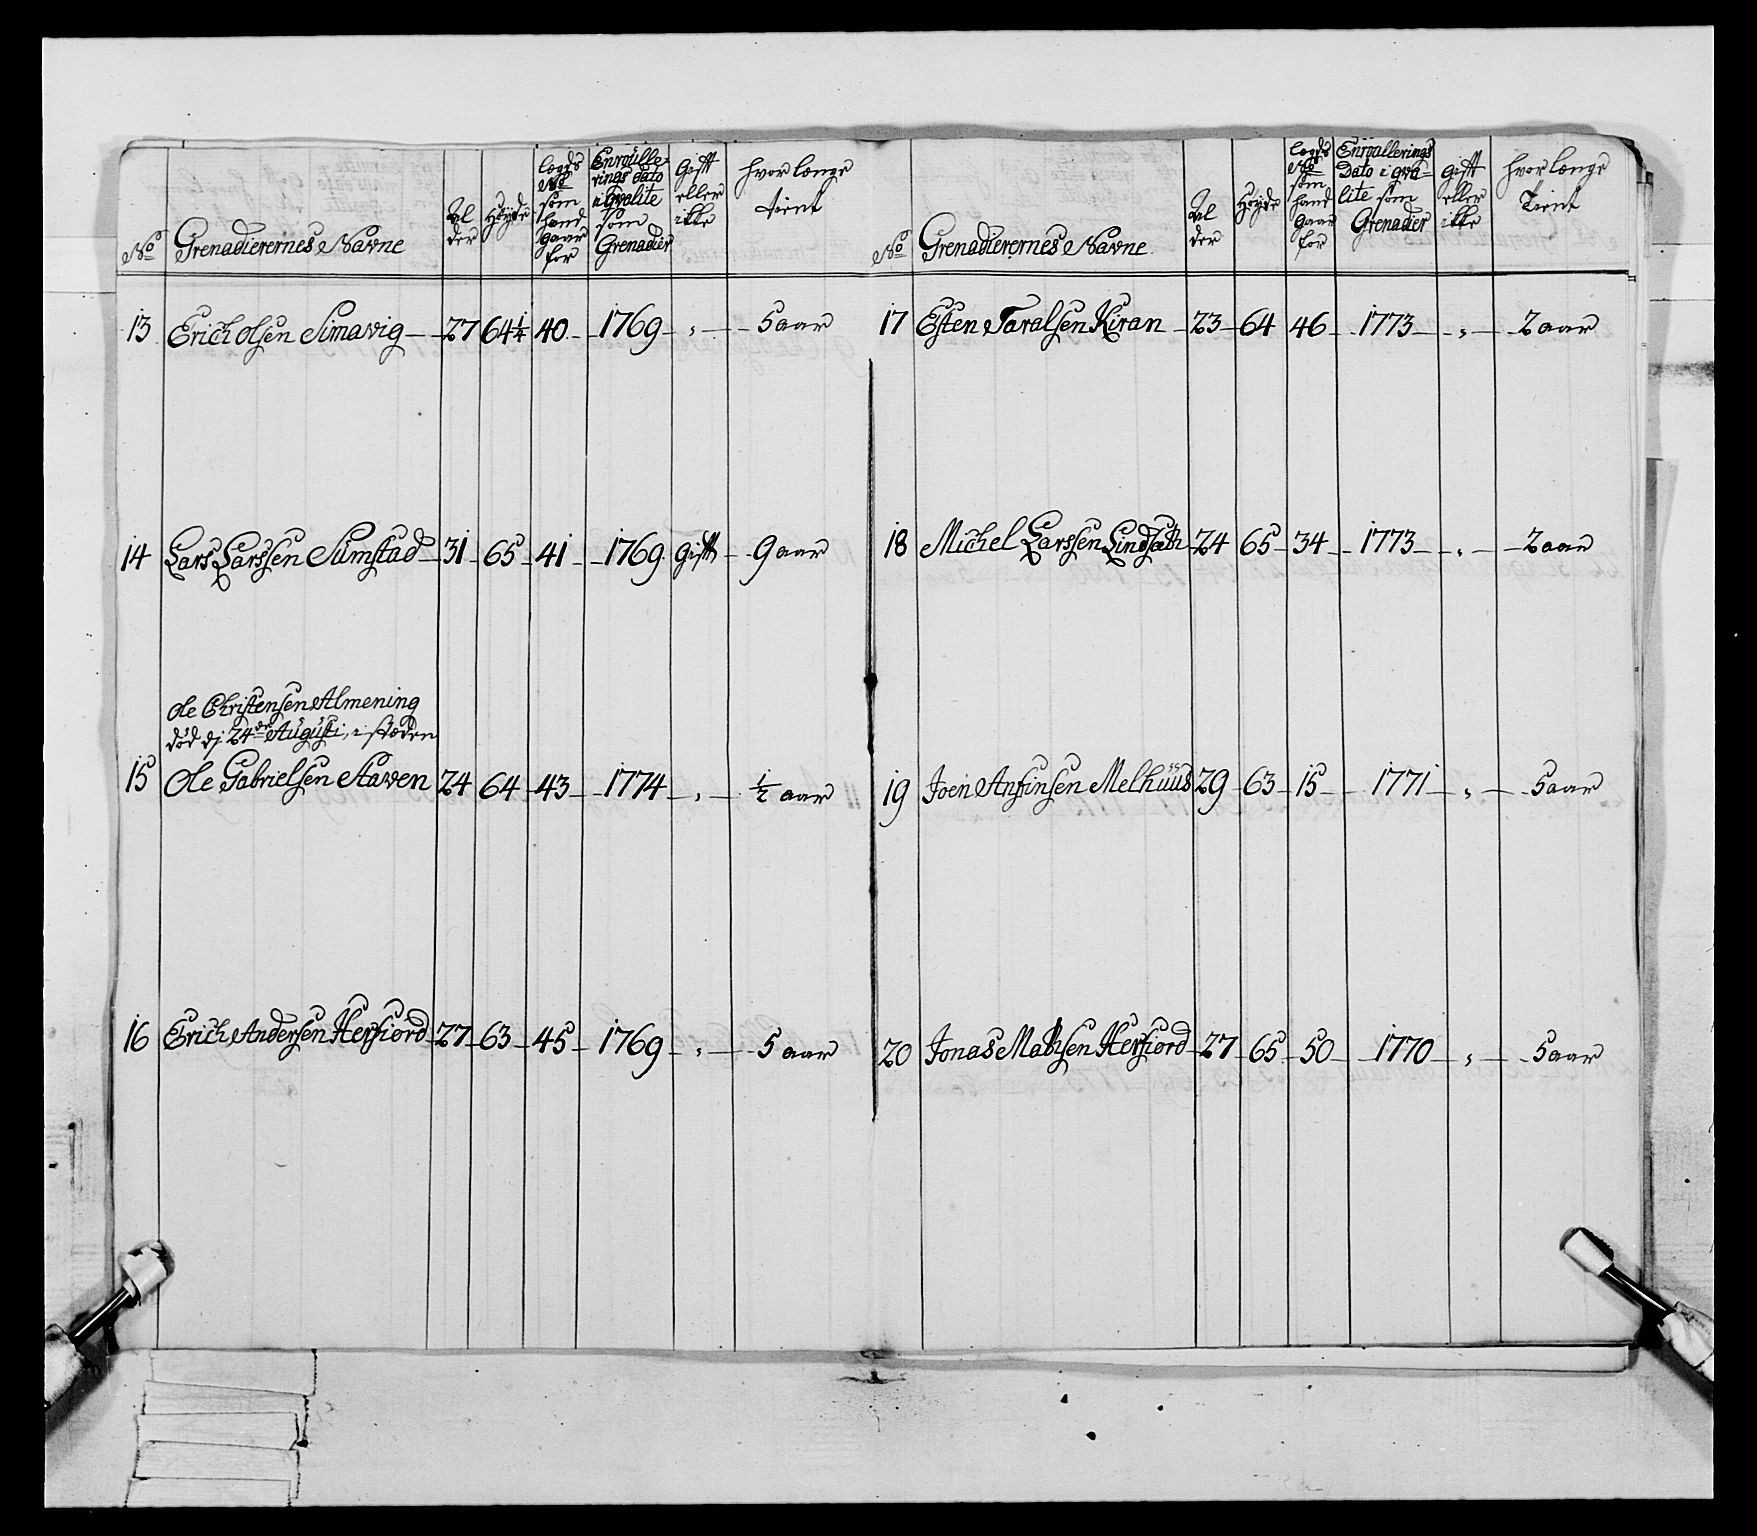 No
Grenadierernes Navne
Al
der
Høyde
Legds
No
som
hand
gaar
for
Enroulle-
rings dato
i qvalite
som
Grenadier
Gift
eller
ikke
hvor længe
tient
13 Erich Olsen Simavig 27 64 1/4 40 1769 " 5 aar
14 Lars Larssen Sumstad 31 65 41 1769 Gift 9 aar
Ole Christensen Almening
død d: 24de Augusti, i stæden
15 Ole Gabrielsen Staven 24 64 43 1774 " 1/2 aar
16 Erich Andersen Hersfiord 27 63 45 1769 " 5 aar
No
Grenadierernes Navne
Al
der
Høyde
Legds
No
som
hand
gaar
for
Enroullerings
Dato i qva-
lite som
Grenadier
gift
eller
ikke
hvor længe
Tient
17 Esten Taralsen Kiran 23 64 46 1773 " 2 aar
18 Michel Larssen 24 65 34 1773 " 2 aar
19 Joen Anfinsen Melhuus 29 63 15 1771 " 5 aar
20 Jonas Madsen Hersfiord 27 65 50 1770 " 5 aar